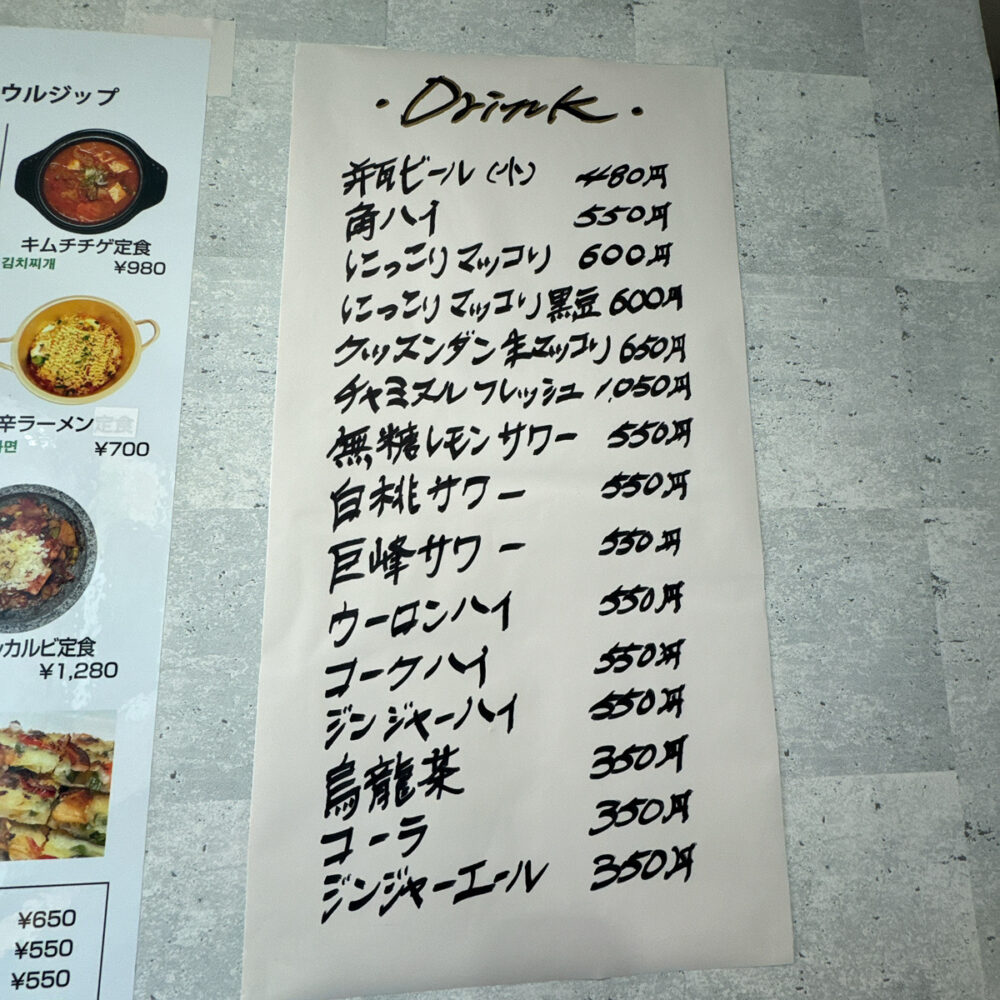 ウルジップ
キムチチゲ定食
김치찌개
¥980
辛ラーメン定食
라면
¥700
カルビ定食
¥1,280
¥650
¥550
¥550
・Drink・
瓶ビール(小) 480円
角ハイ 550円
にっこりマッコリ 600円
にっこりマッコリ黒豆 600円
クッスンダン生マッコリ 650円
チャミスルフレッシュ 1,050円
無糖レモンサワー 550円
白桃サワー 550円
巨峰サワー 550円
ウーロンハイ 550円
コークハイ 550円
ジンジャーハイ 550円
烏龍茶 350円
コーラ 350円
ジンジャーエール 350円